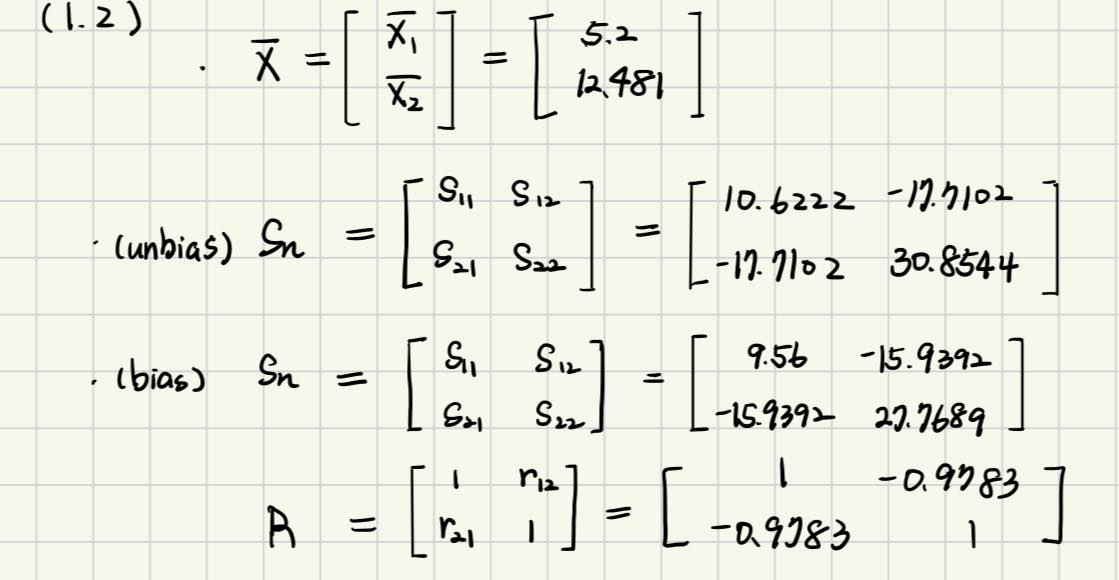 (1.2)
· X̄ = [ X̄₁ ; X̄₂ ] = [ 5.2 ; 12.481 ]
· (unbias) Sn = [ S₁₁ S₁₂ ; S₂₁ S₂₂ ] = [ 10.6222 -17.7102 ; -17.7102 30.8544 ]
· (bias) Sn = [ S₁₁ S₁₂ ; S₂₁ S₂₂ ] = [ 9.56 -15.9392 ; -15.9392 27.7689 ]
R = [ 1 r₁₂ ; r₂₁ 1 ] = [ 1 -0.9783 ; -0.9783 1 ]